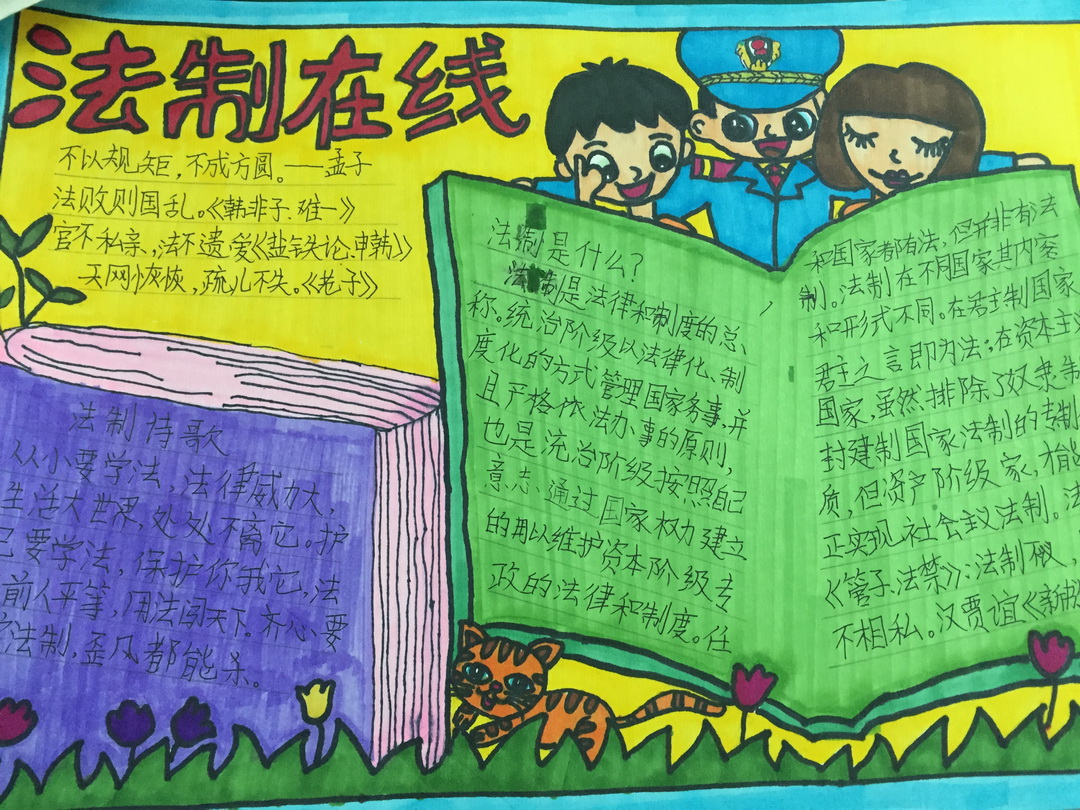 法制在线
不以规矩，不成方圆。——孟子
法败则国乱。《韩非子.难一》
官不私亲，法不遗爱《盐铁论.申韩》
天网恢恢，疏儿不失。《老子》
法制诗歌
从小要学法，法律威力大，
生活大世界，处处不离它。护
己要学法，保护你我它，法
前人平等，用法闯天下。齐心要
法制，歪风都能杀。
法制是什么？
法制是法律和制度的总
称。统治阶级以法律化、制
度化的方式管理国家务事，并
且严格依法办事的原则，
也是统治阶级按照自己
意志通过国家权力建立
的用以维护资本阶级专
政的法律和制度。任
和国家都有法，但并非有法
制。法制在不同国家其内容
和形式不同。在君主制国家
君主之言即为法；在资本主
国家，虽然排除了奴隶制
封建制国家法制的专制
质，但资产阶级家，才能
正实现社会主义法制。法
《管子.法禁》：法制不议，
不相私。汉贾谊《新书